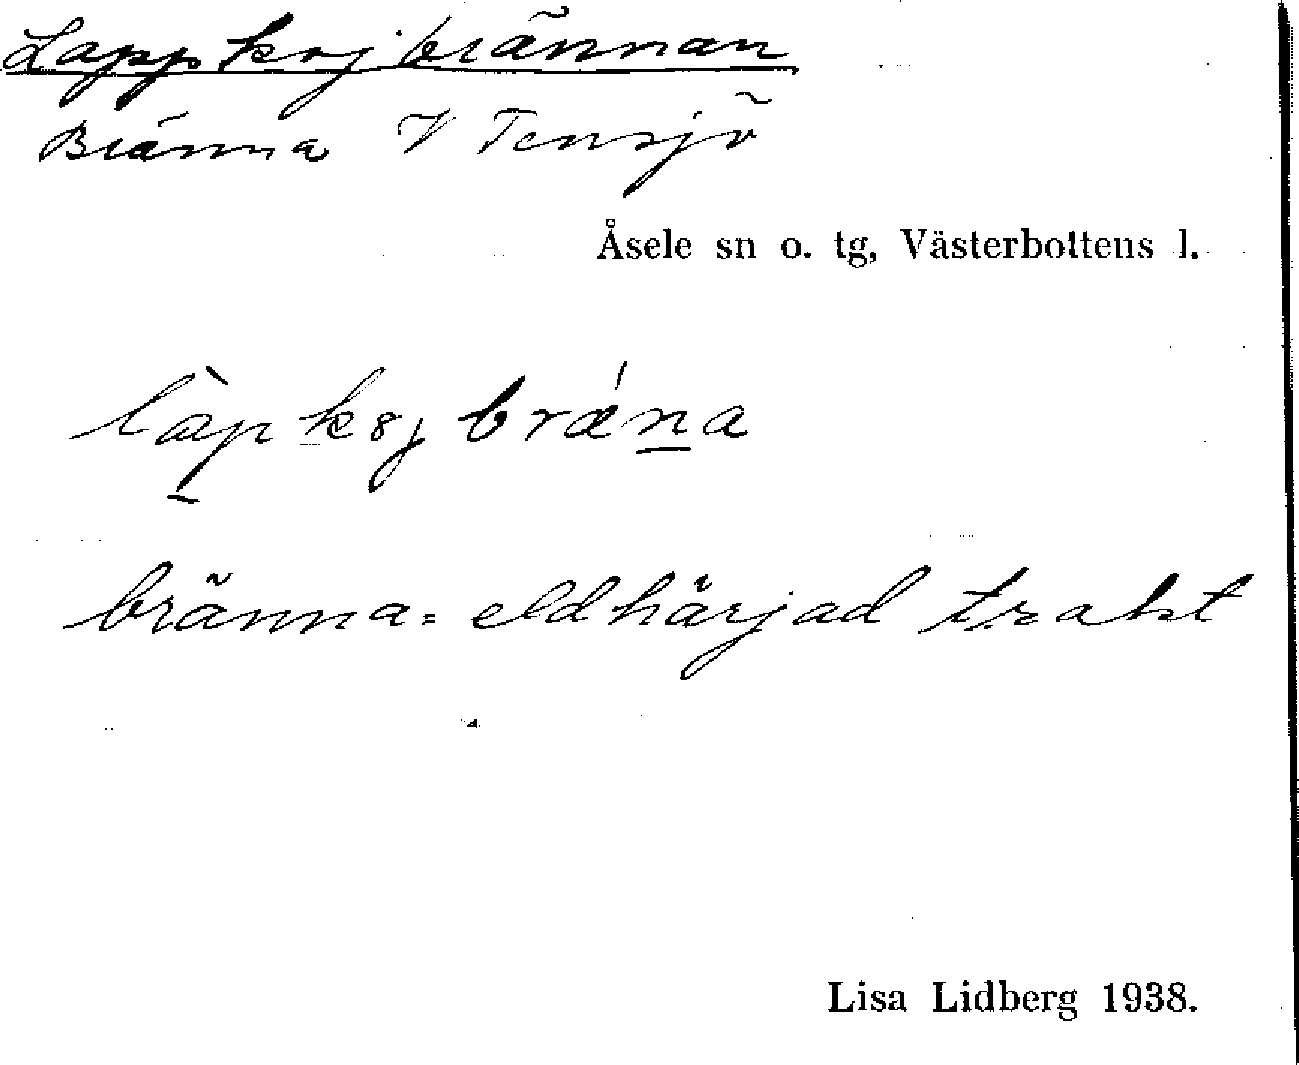 Lappkojbrännan
Bränna V Tensjö
Åsele sn o. tg, Västerbottens l.
bränna = eldhärjad trakt
Lisa Lidberg 1938.